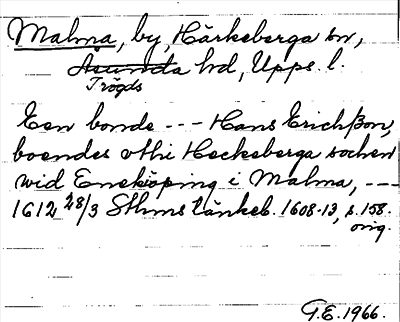 Malma, by, Härkeberga sn,
Åsunda hd, Upps. l.
Trögds
Een bonde --- Hans Erichßon,
boendes vthi Heckeberga sochen
wid Eneköping i Malma, ---
1612 28/3 Sthms tänkeb. 1608-13, s. 158.
orig.
G.E. 1966.